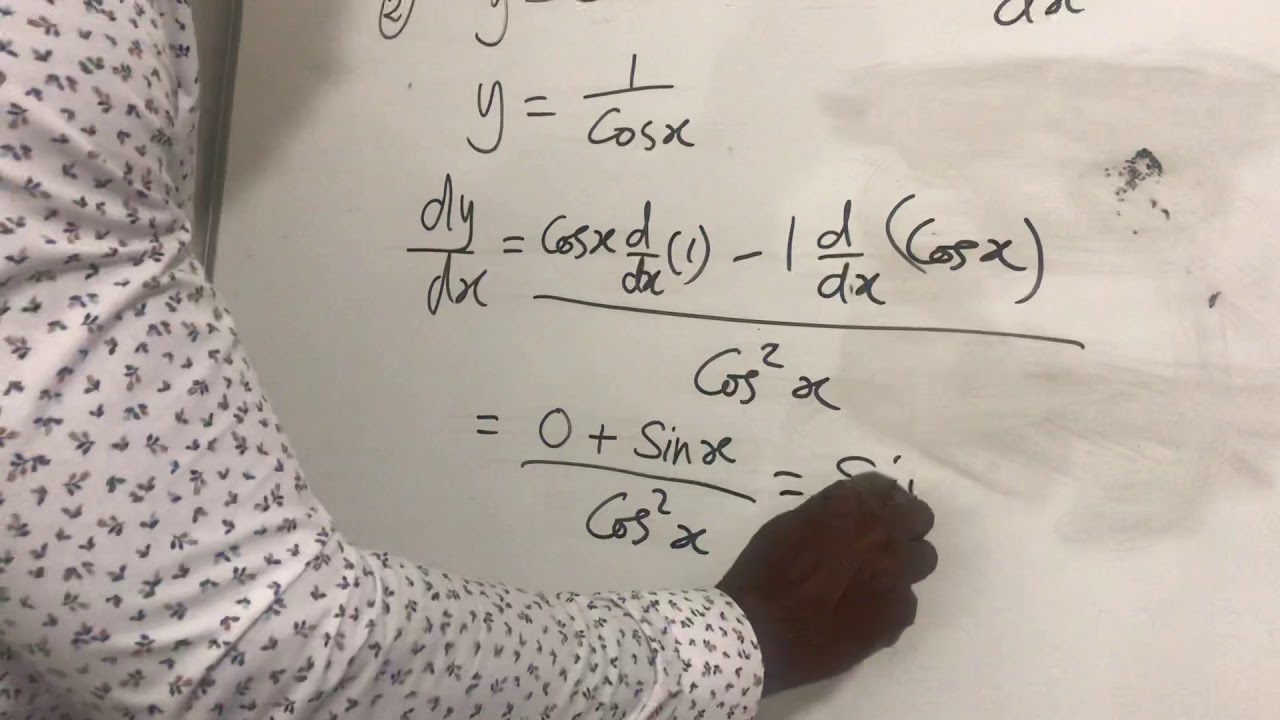 2) y = dx
y = 1/Cosx
dy/dx = (Cosx d/dx (1) - 1 d/dx (Cosx))/Cos²x
= (0 + Sinx)/Cos²x = Si